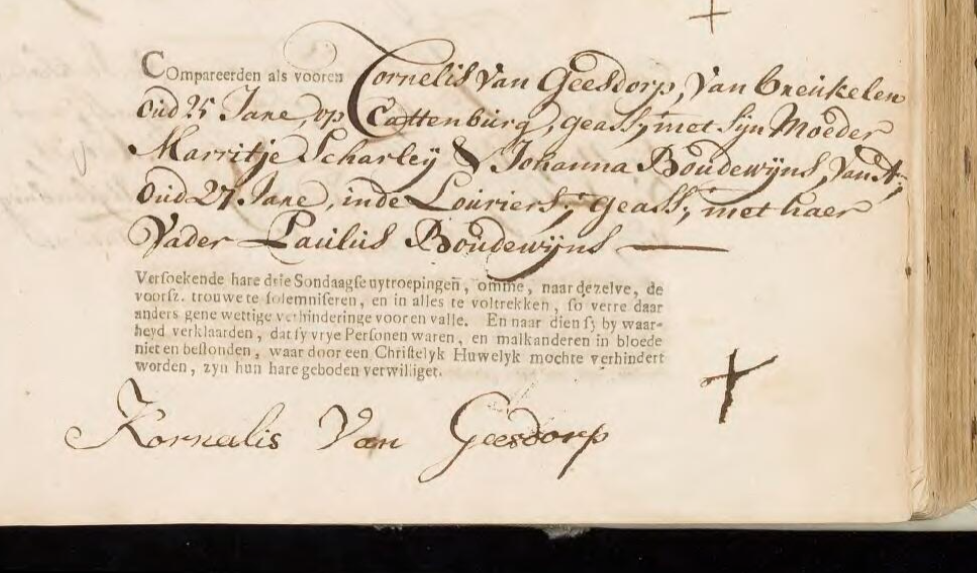 COmpareerden als vooren Cornelis van Geesdorp, van breukelen
oud 25 Jare, op Cattenburg, geass; met sijn Moeder
Marritje Scharley & Johanna Boudewijns, van A;
oud 27 Jare, inde Louriers; geass; met haer
Vader Paulus Boudewijns
Versoekende hare drie Sondaagse uytroepingen, omme, naar dezelve, de
voorsz. trouwe te solemniseren, en in alles te voltrekken, so verre daar
anders gene wettige verhinderinge voor en valle. En naar dien sy by waar-
heyd verklaarden, dat sy vrye Personen waren, en malkanderen in bloede
niet en bestonden, waar door een Christelyk Huwelyk mochte verhindert
worden, zyn hun hare geboden verwilliget.
Kornelis Van Geesdorp